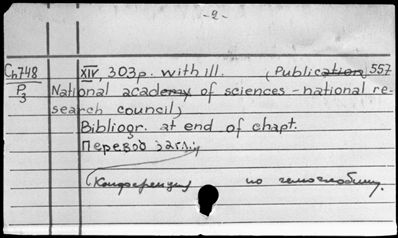 -2-
Ch748 XIV, 303p. with ill. (Publication 557
P3 National academy of sciences - national re-
search council)
Bibliogr. at end of chapt.
Перевод загл.:
(Конференция по гемоглобину.